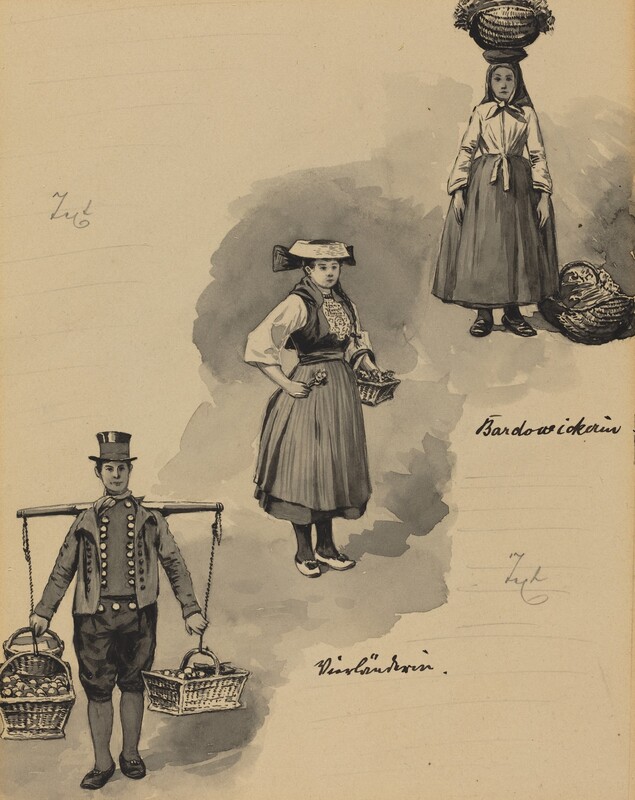 Text
Bardowickerin
Text
Vierländerin.